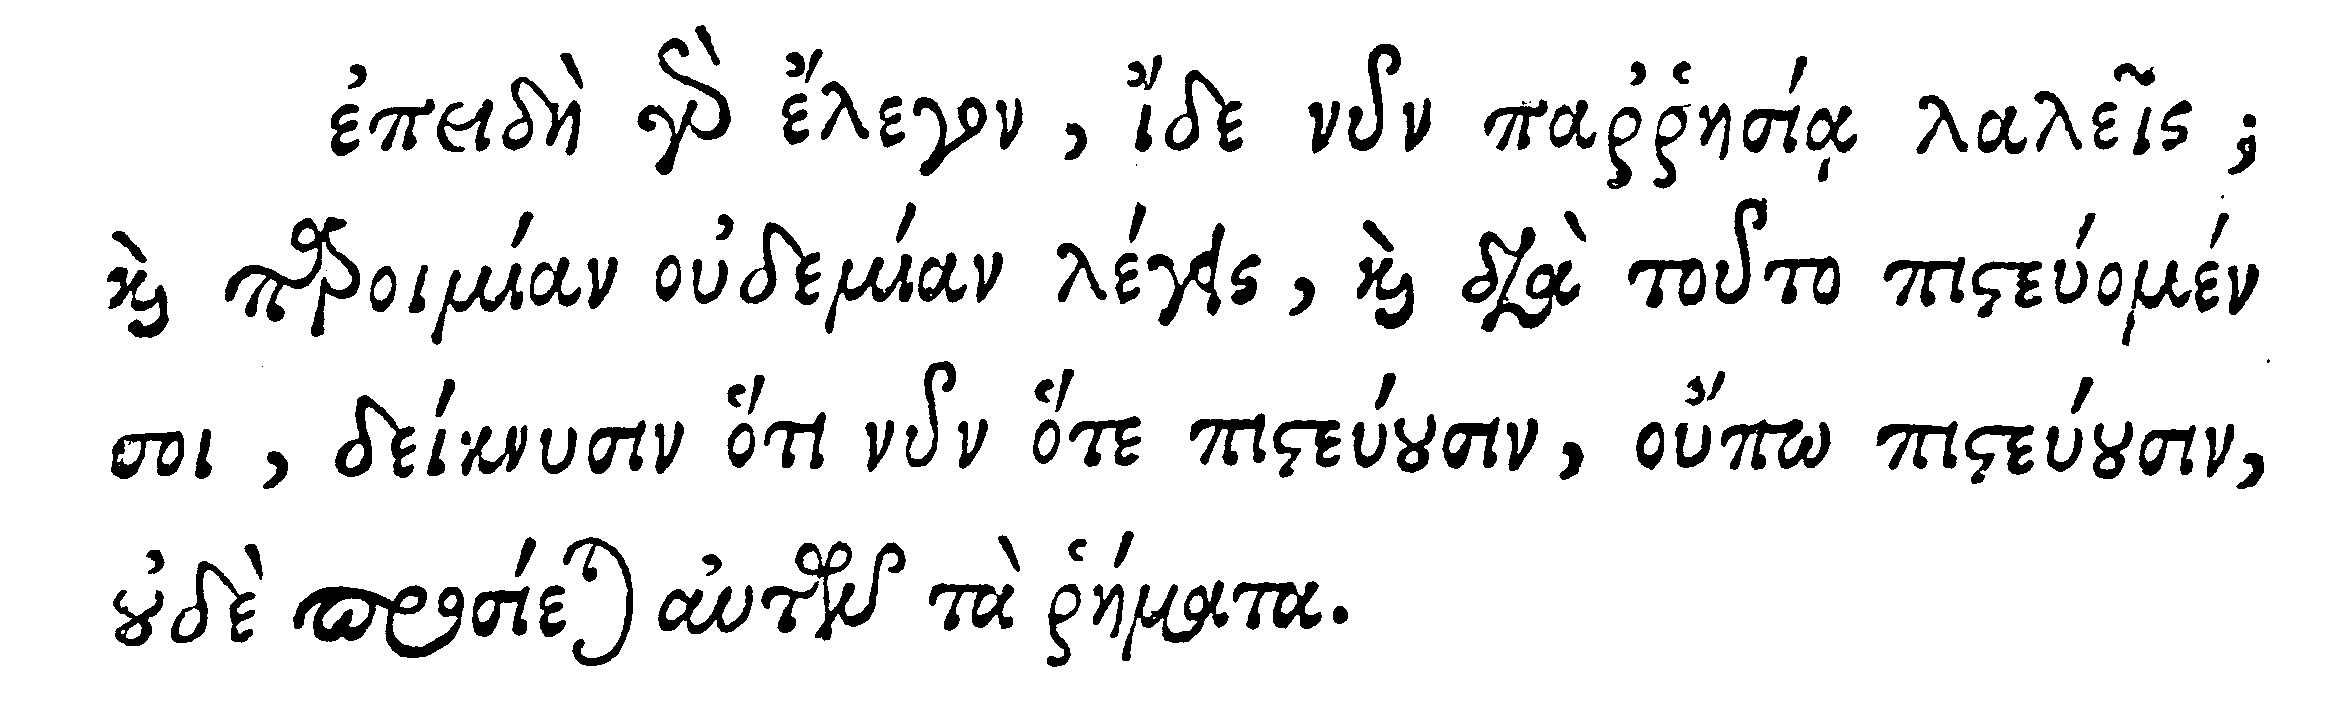 ἐπειδὴ γὰρ ἔλεγον, ἴδε νῦν παῤῥησίᾳ λαλεῖς;
καὶ παροιμίαν οὐδεμίαν λέγεις, καὶ διὰ τοῦτο πιστεύομέν
σοι, δείκνυσιν ὅτι νῦν ὅτε πιστεύουσιν, οὔπω πιστεύουσιν,
οὐδὲ προσίεται αὐτῶν τὰ ῥήματα.